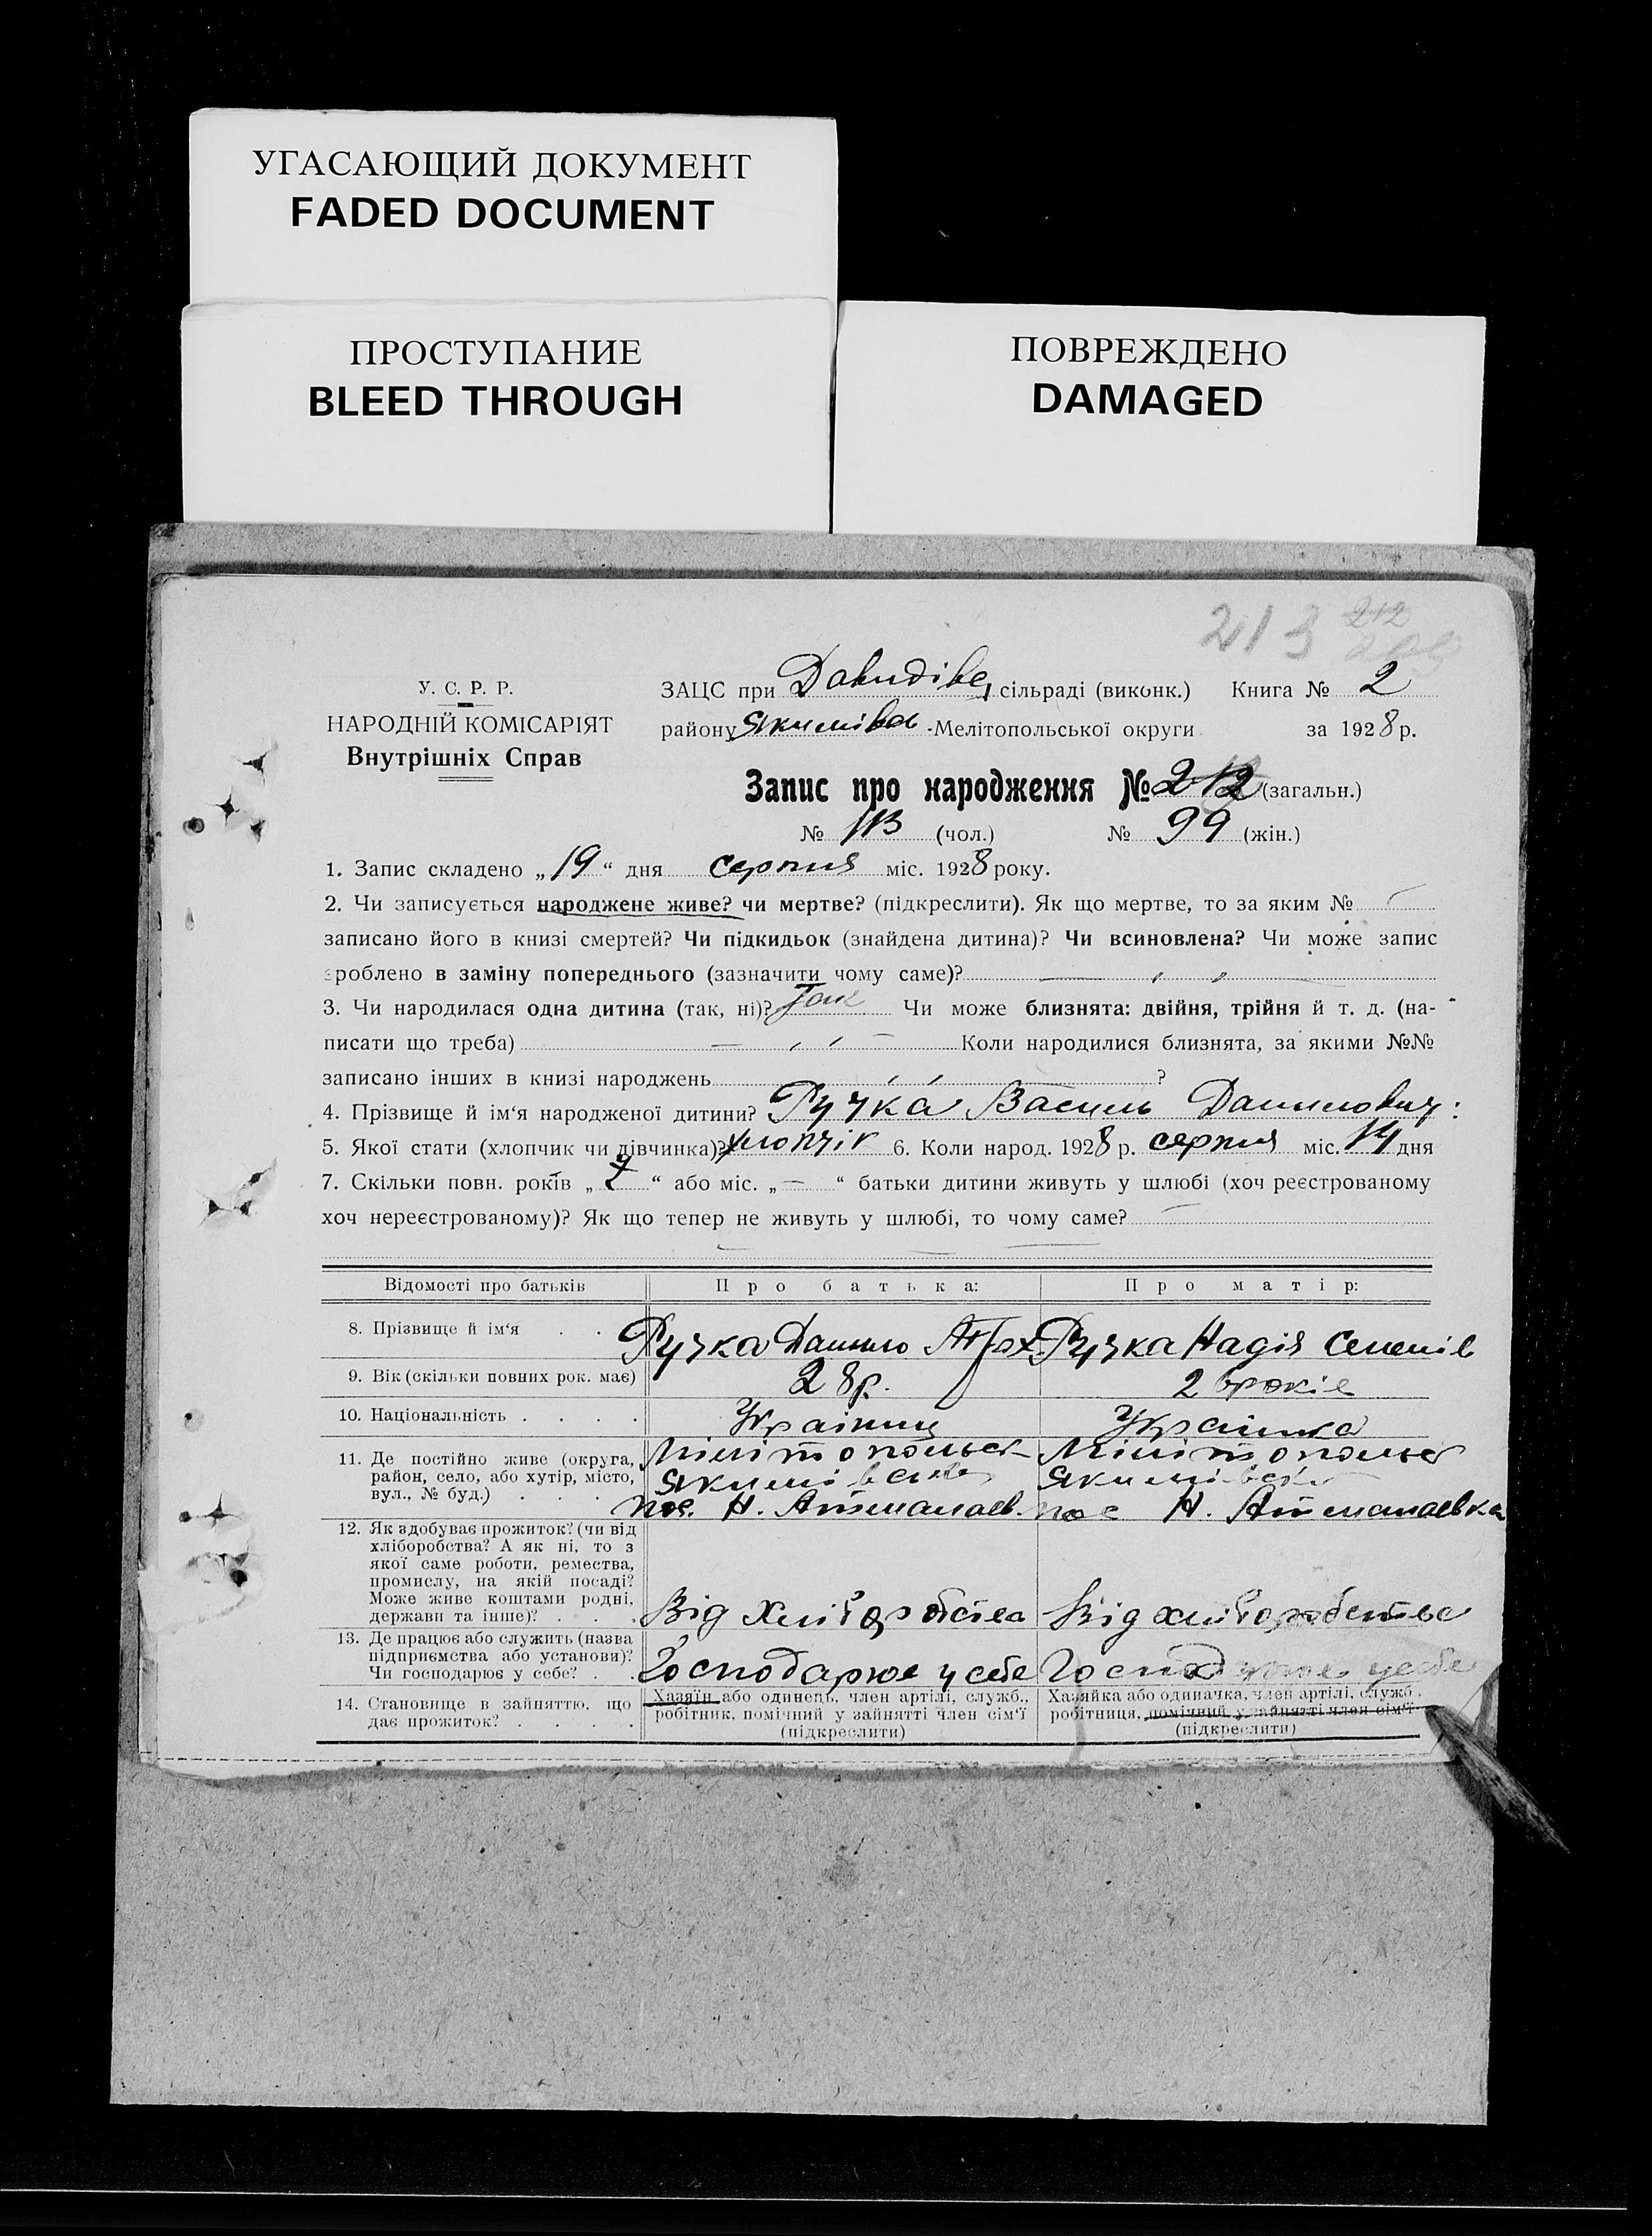 УГАСАЮЩИЙ ДОКУМЕНТ
FADED DOCUMENT
ПРОСТУПАНИЕ
BLEED THROUGH
ПОВРЕЖДЕНО
DAMAGED
213 212
У. С. Р. Р.
НАРОДНІЙ КОМІСАРІЯТ
Внутрішніх Справ
ЗАЦС при Давидівс, сільраді (виконк.) Книга № 2
району Якимівсь -Мелітопольської округи за 1928 р.
Запис про народження № 212 (загальн.)
№ 113 (чол.) № 99 (жін.)
1. Запис складено „19“ дня серпня міс. 1928 року.
2. Чи записується народжене живе? чи мертве? (підкреслити). Як що мертве, то за яким №
записано його в книзі смертей? Чи підкидьок (знайдена дитина)? Чи всиновлена? Чи може запис
зроблено в заміну попереднього (зазначити чому саме)?
3. Чи народилася одна дитина (так, ні)? Так Чи може близнята: двійня, трійня й т. д. (на-
писати що треба) Коли народилися близнята, за якими №№
записано інших в книзі народжень ?
4. Прізвище й ім‘я народженої дитини? Ручка Василь Данилович:
5. Якої стати (хлопчик чи дівчинка)? хлопчік 6. Коли народ. 1928 р. серпня міс. 14 дня
7. Скільки повн. років „ “ або міс. „—“ батьки дитини живуть у шлюбі (хоч реєстрованому
хоч нереєстрованому)? Як що тепер не живуть у шлюбі, то чому саме?
Відомості про батьків Про батька: Про матір:
8. Прізвище й ім‘я . . Ручка Данило Ручка Надія Семенів
9. Вік (скільки повних рок. має) 28р. 28років
10. Національність . . . . Українц Українка
11. Де постійно живе (округа, район, село, або хутір, місто, вул., № буд.) . . .
Мілітопольск
Якимівськ
пос. Н. Атманаєв.
Мілітопольс
Якимівськ
пос Н. Атманаевка
12. Як здобуває прожиток? (чи від
хліборобства? А як ні, то з
якої саме роботи, ремества,
промислу, на якій посаді?
Може живе коштами родні,
держави та інше)? . . .
Від Хліборобства Від хліборобства
13. Де працює або служить (назва
підприємства або установи)?
Чи господарює у себе? . .
Господарює у себе Господарює у себе
14. Становище в зайняттю, що
дає прожиток? . . . .
Хазяїн або одинець, член артілі, служб.,
робітник, помічний у зайнятті член сім‘ї
(підкреслити)
Хазяйка або одиначка, член артілі, служб.,
робітниця, помічний у зайнятті член сім‘ї
(підкреслити)